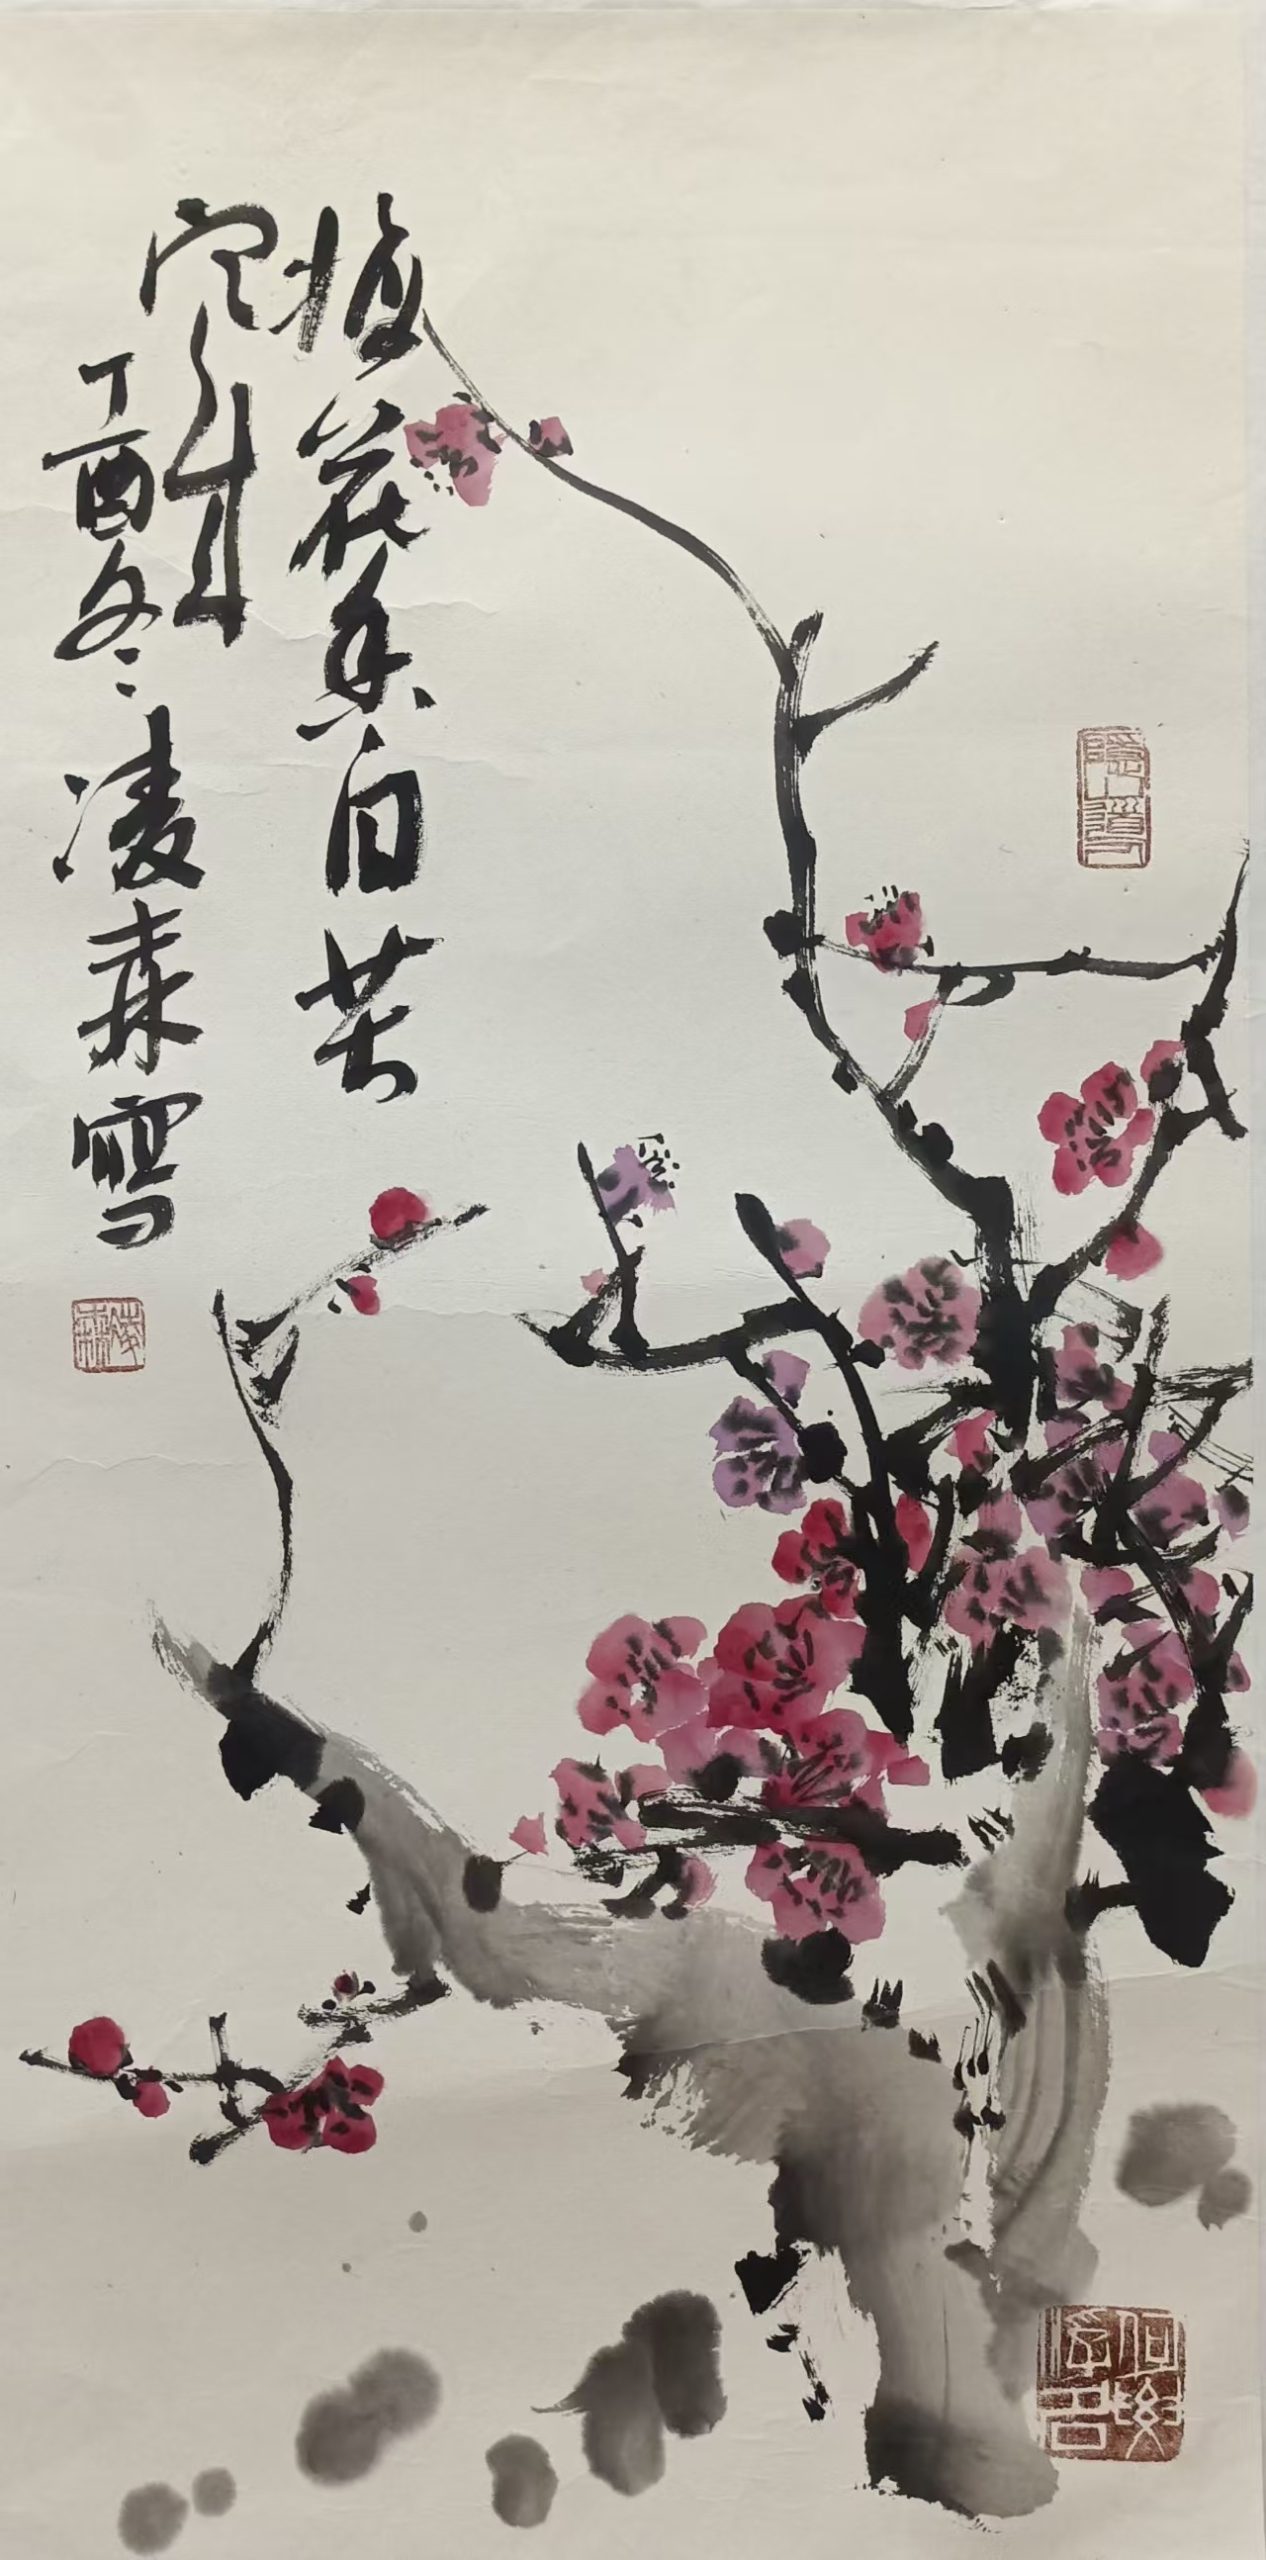 梅花香自苦
寒来
丁酉冬凌森寫
凌森